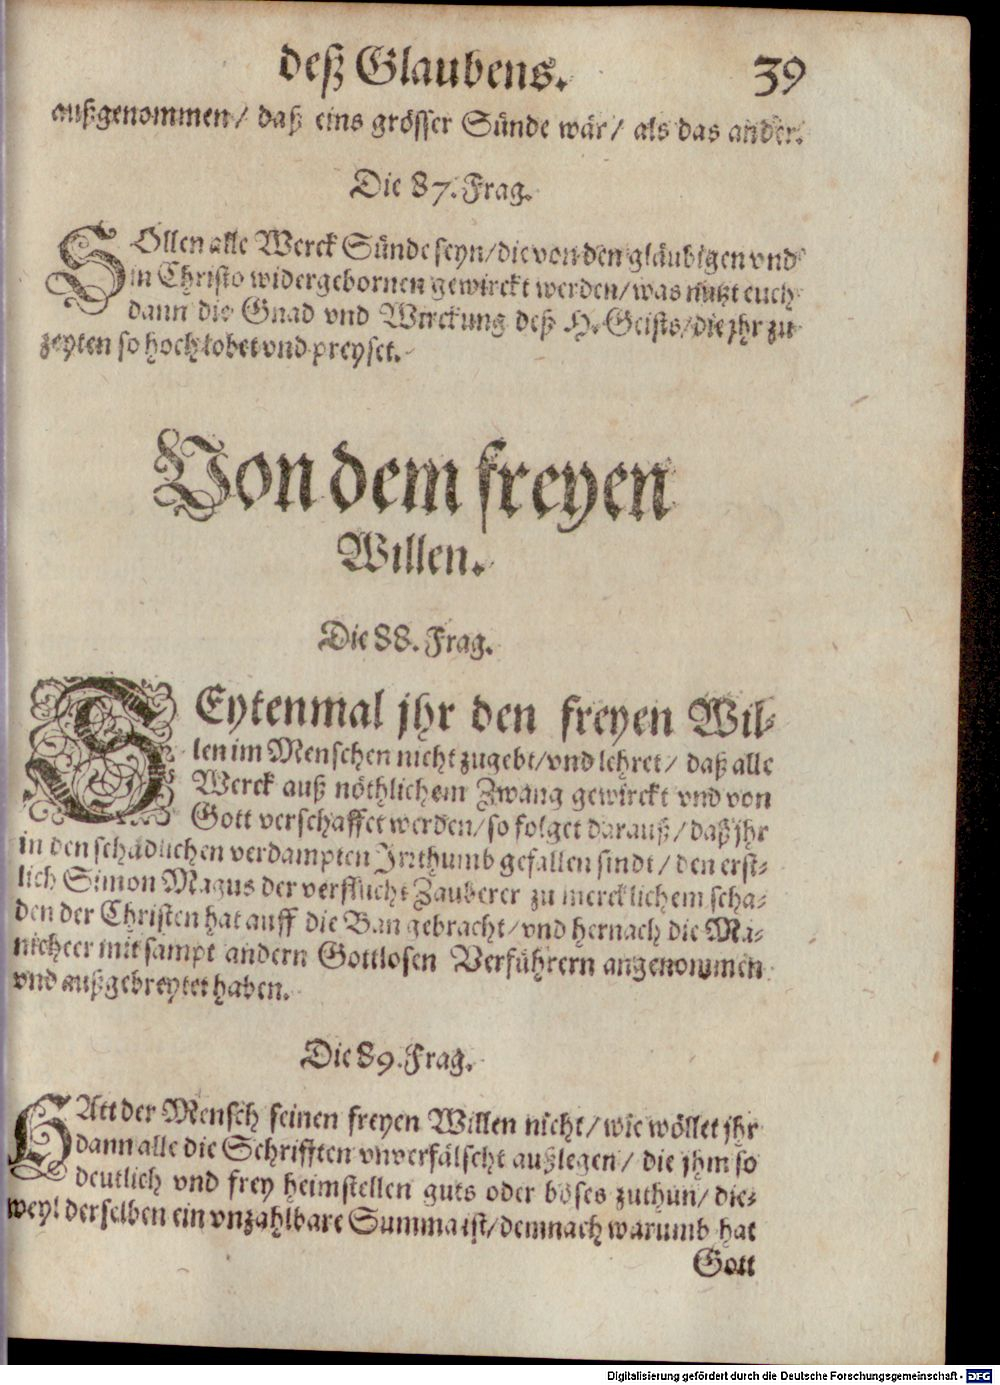 deß Glaubens. 39
außgenommen/ daß eins grösser Sünde wär/ als das ander.
Die 87. Frag.
SOllen alle Werck Sünde seyn/die von den gläubigen vnd
in Christo widergebornen gewirckt werden/was nutzt euch
dann die Gnad vnd Wirckung deß H. Geists/die jhr zu
zeyten so hoch lobet vnd preyset.
Von dem freyen
Willen.
Die 88. Frag.
SEytenmal jhr den freyen Wil-
len im Menschen nicht zugebt/vnd lehret/ daß alle
Werck auß nöthlichem Zwang gewirckt vnd von
Gott verschaffet werden/so folget darauß/daß jhr
in den schädlichen verdampten Irrthumb gefallen sindt/den erst-
lich Simon Magus der verflucht Zauberer zu mercklichem scha-
den der Christen hat auff die Ban gebracht/vnd hernach die Ma-
nicheer mit sampt andern Gottlosen Verführern angenommen
vnd außgebreytet haben.
Die 89. Frag.
HAtt der Mensch seinen freyen Willen nicht/wie wöllet jhr
dann alle die Schrifften vnverfälscht außlegen/ die jhm so
deutlich vnd frey heimstellen guts oder böses zuthun/die-
weyl derselben ein vnzahlbare Summa ist/demnach warumb hat
Gott
Digitalisierung gefördert durch die Deutsche Forschungsgemeinschaft - DFG